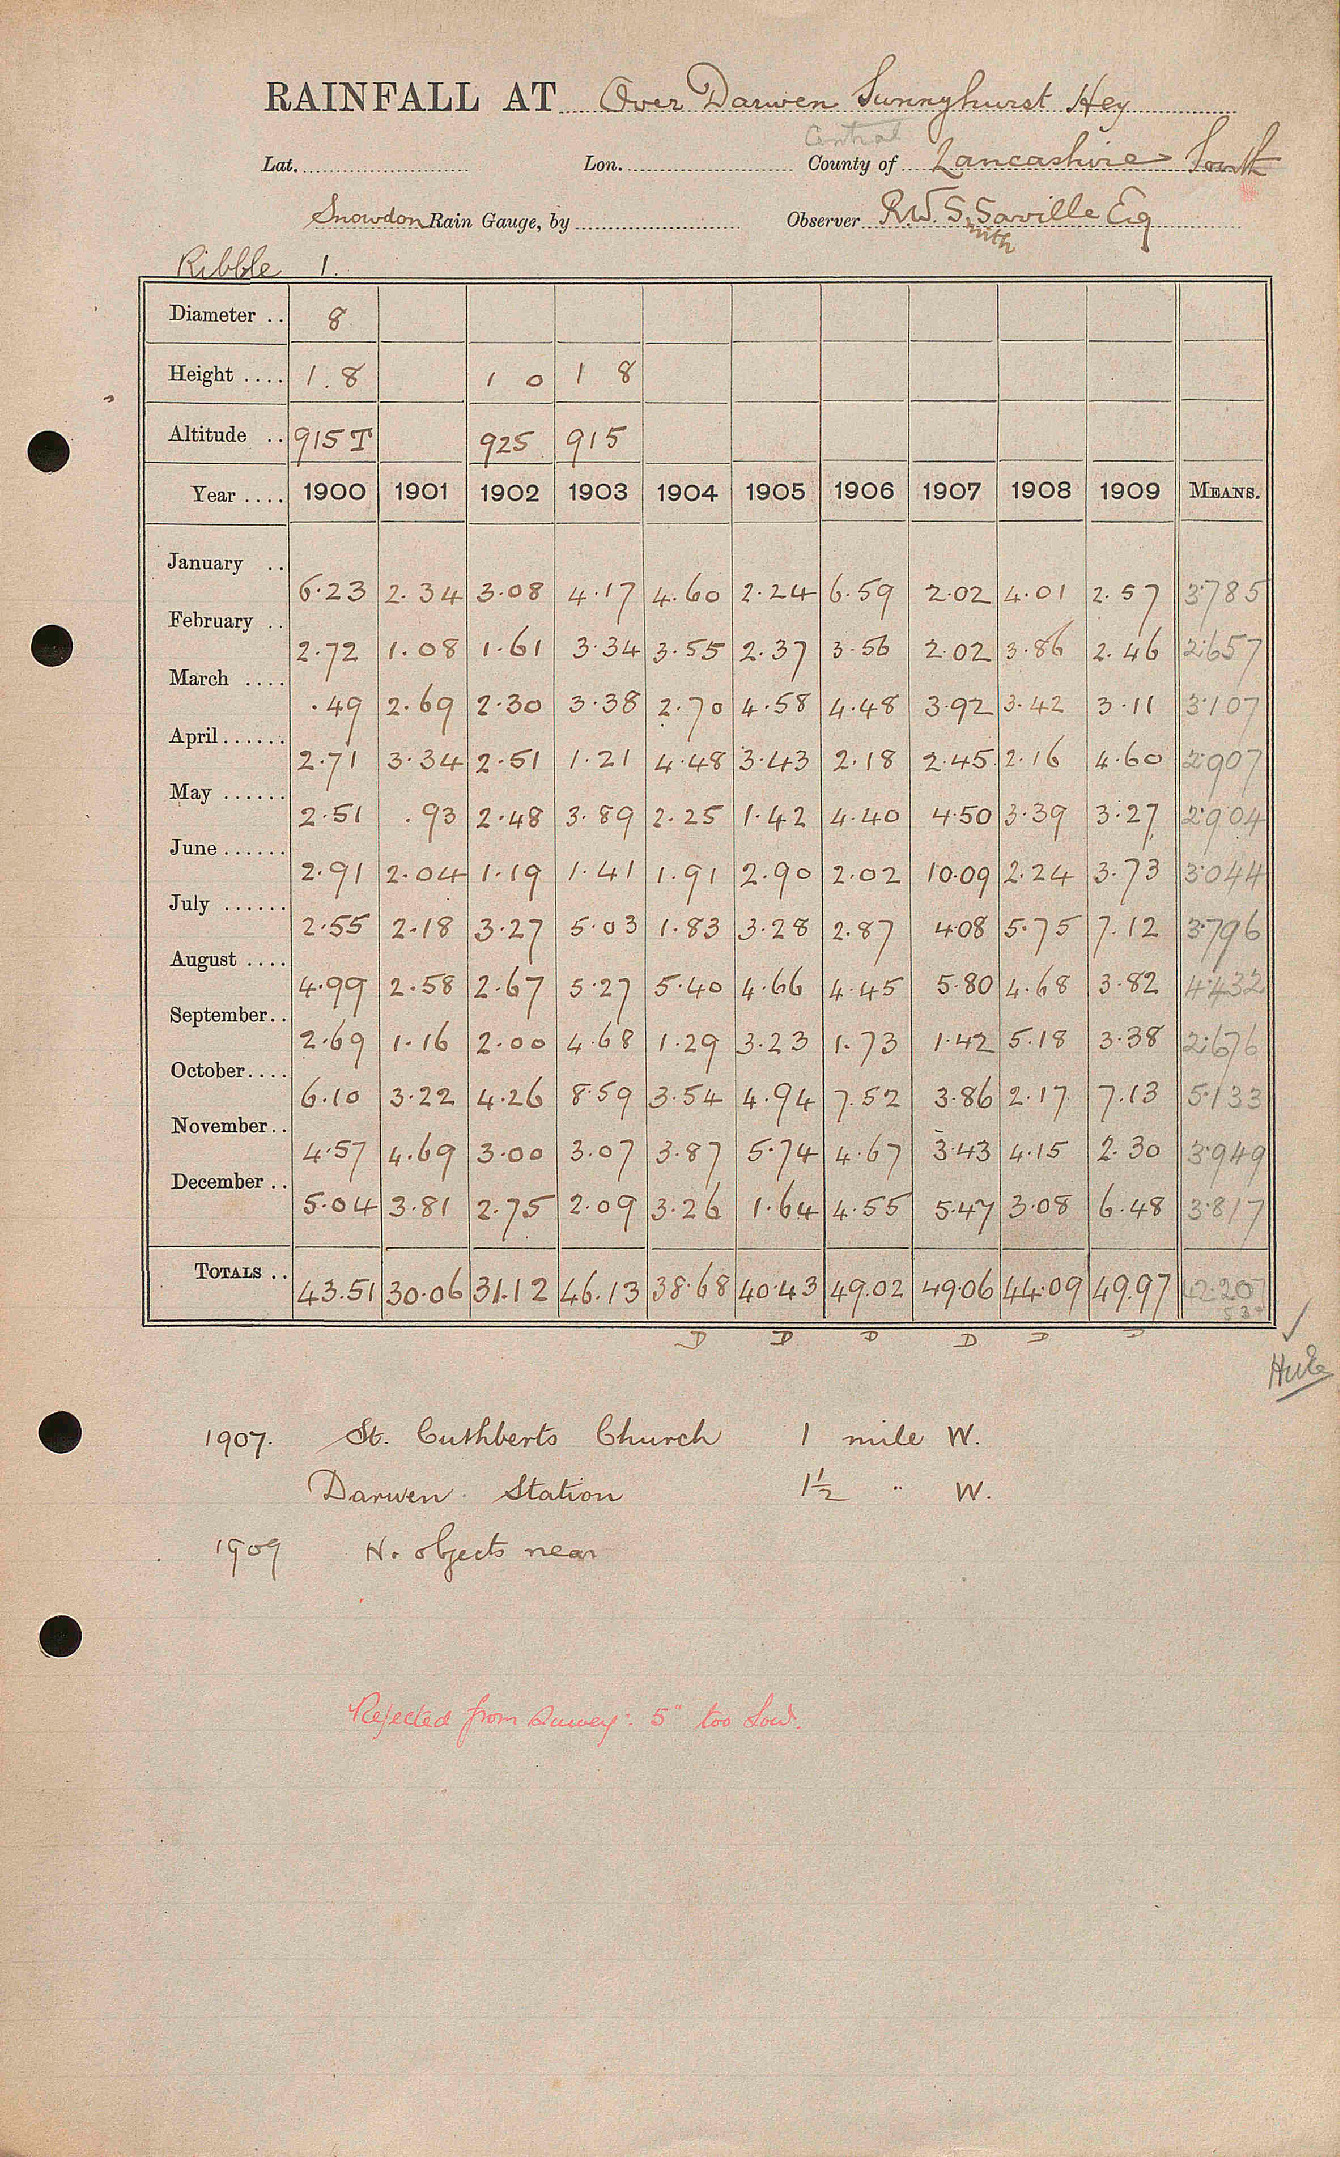 RAINFALL AT Over Darwen Sunnyhurst Hey
Central
Lat. Lon. County of Lancashire South
Snowdon Rain Gauge, by Observer R.W. S. Saville Esq
mith
Ribble 1.
Diameter .. 8
Height .... 1.8 1 0 1 8
Altitude .. 915 T 925 915
Year .... 1900 1901 1902 1903 1904 1905 1906 1907 1908 1909 MEANS.
January .. 6.23 2.34 3.08 4.17 4.60 2.24 6.59 2.02 4.01 2.57 3.785
February .. 2.72 1.08 1.61 3.34 3.55 2.37 3.56 2.02 3.86 2.46 2.657
March .... .49 2.69 2.30 3.38 2.70 4.58 4.48 3.92 3.42 3.11 3.107
April...... 2.71 3.34 2.51 1.21 4.48 3.43 2.18 2.45 2.16 4.60 2.907
May ...... 2.51 .93 2.48 3.89 2.25 1.42 4.40 4.50 3.39 3.27 2.904
June ...... 2.91 2.04 1.19 1.41 1.91 2.90 2.02 10.09 2.24 3.73 3.044
July ...... 2.55 2.18 3.27 5.03 1.83 3.28 2.87 4.08 5.75 7.12 3.796
August .... 4.99 2.58 2.67 5.27 5.40 4.66 4.45 5.80 4.68 3.82 4.432
September.. 2.69 1.16 2.00 4.68 1.29 3.23 1.73 1.42 5.18 3.38 2.676
October.... 6.10 3.22 4.26 8.59 3.54 4.94 7.52 3.86 2.17 7.13 5.133
November.. 4.57 4.69 3.00 3.07 3.87 5.74 4.67 3.43 4.15 2.30 3.949
December .. 5.04 3.81 2.75 2.09 3.26 1.64 4.55 5.47 3.08 6.48 3.817
TOTALS .. 43.51 30.06 31.12 46.13 38.68 40.43 49.02 49.06 44.09 49.97 42.207
D D D D D D
1907. St. Cuthberts Church 1 mile W.
Darwen Station 1½ " W.
1909 No objects near
Rejected from Survey: 5" too Low.